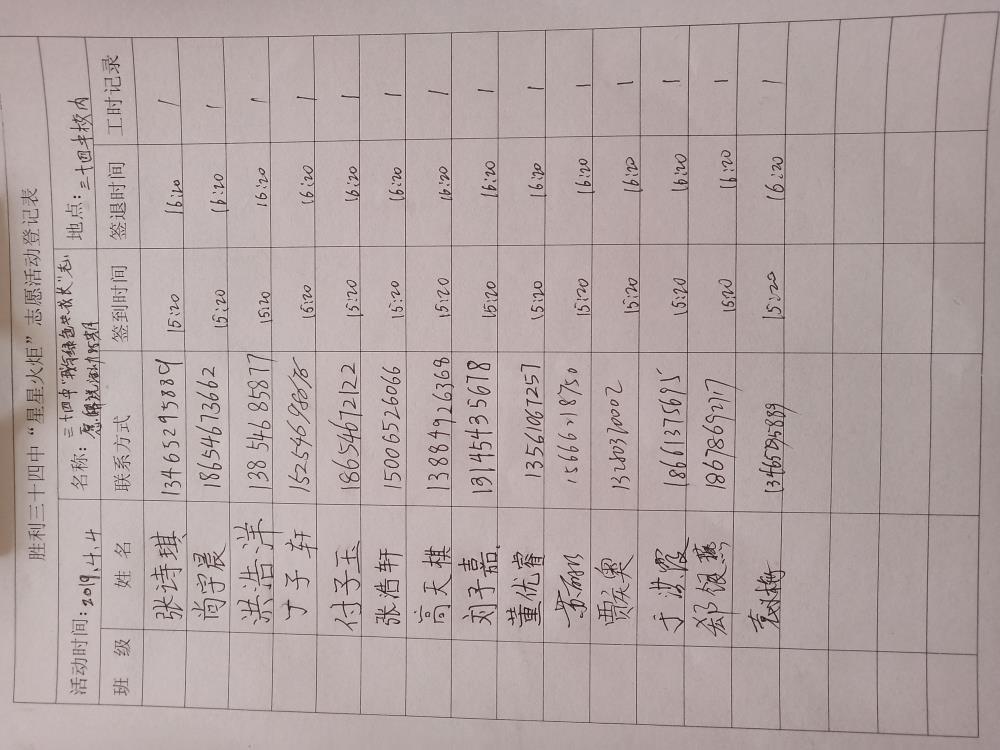 胜利三十四中“星星火炬”志愿活动登记表
活动时间：2019.4.4 名称：三十四中“我与绿色共成长”志愿解说活动 地点：三十四中校内
班 级 姓 名 联系方式 签到时间 签退时间 工时记录
张诗琪 13465295889 15:20 16:20 1
尚宇晨 18654673662 15:20 16:20 1
洪浩洋 13854685877 15:20 16:20 1
丁子轩 15:20 16:20 1
付子玉 18654672122 15:20 16:20 1
张浩轩 15006526066 15:20 16:20 1
高天棋 13884926368 15:20 16:20 1
刘子嘉 13145435678 15:20 16:20 1
董优睿 13561067257 15:20 16:20 1
15666218750 15:20 16:20 1
贾奕奥 13280370002 15:20 16:20 1
于洪霞 18661375695 15:20 16:20 1
郑银燕 18678692117 15:20 16:20 1
13465295889 15:20 16:20 1